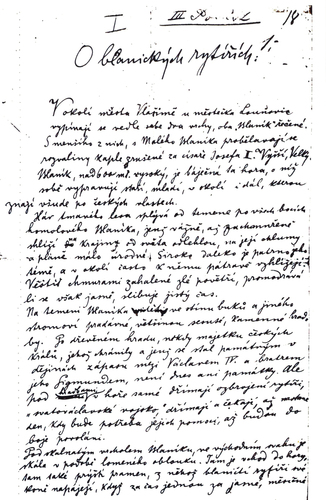 I III
O blanických rytířích.
V okolí města Vlašimě u městečka Louňovic
vypínají se vedle sebe dva vrchy, oba Blaník řečené.
S menšího z nich, s Malého Blaníka probělávají se
zvaliny kaple zrušené za císaře Josefa II. Vyšší, Velký
Blaník, nad 600 m. vysoký, je bájená ta hora, o níž
sobě vypravují staří, mladí, v okolí i dál, kterou
znají všude po českých vlastech.
Háv tmavého lesa splývá od temene po všech bocích
homolovitého Blaníka, jenž vážně, až zachmuřeně
shlíží v krajiny od světa odlehlou, na její chlumy
a pláně málo úrodné. Široko daleko je patrno
témě, a v okolí často k němu pátravě vzhlížejí.
Vězí-li chmurami zahalené zlé povětří, promodrává-
li se však jasně, slibuje jistý čas.
Na temeni Blaníka ve stínu buků a jedlí
stromoví pradávné, většinou sesutá, kamenné hrad-
by. Po dřevěném hradu, někdy majetku českých
králů, jehož chránily a jenž se stal památným v
dějinách zápasu mezi Václavem IV. a bratrem
jeho Sigmundem, není dnes ani památky. Ale
pod v hoře samé dřímají ozbrojení rytíři,
svatováclavské vojsko, dřímají a čekají, až
den, kdy bude potřeba jejich pomoci, až budou do
boje povoláni.
Pod skalnatým vrcholem Blaníka, na východním svahu je
skála v podobě lomeného oblouku. Tam je vchod do hory,
tam také prýští pramen, z něhož blaničtí rytíři své
koně napájejí, když za čas jednou za jasné, měsíčné